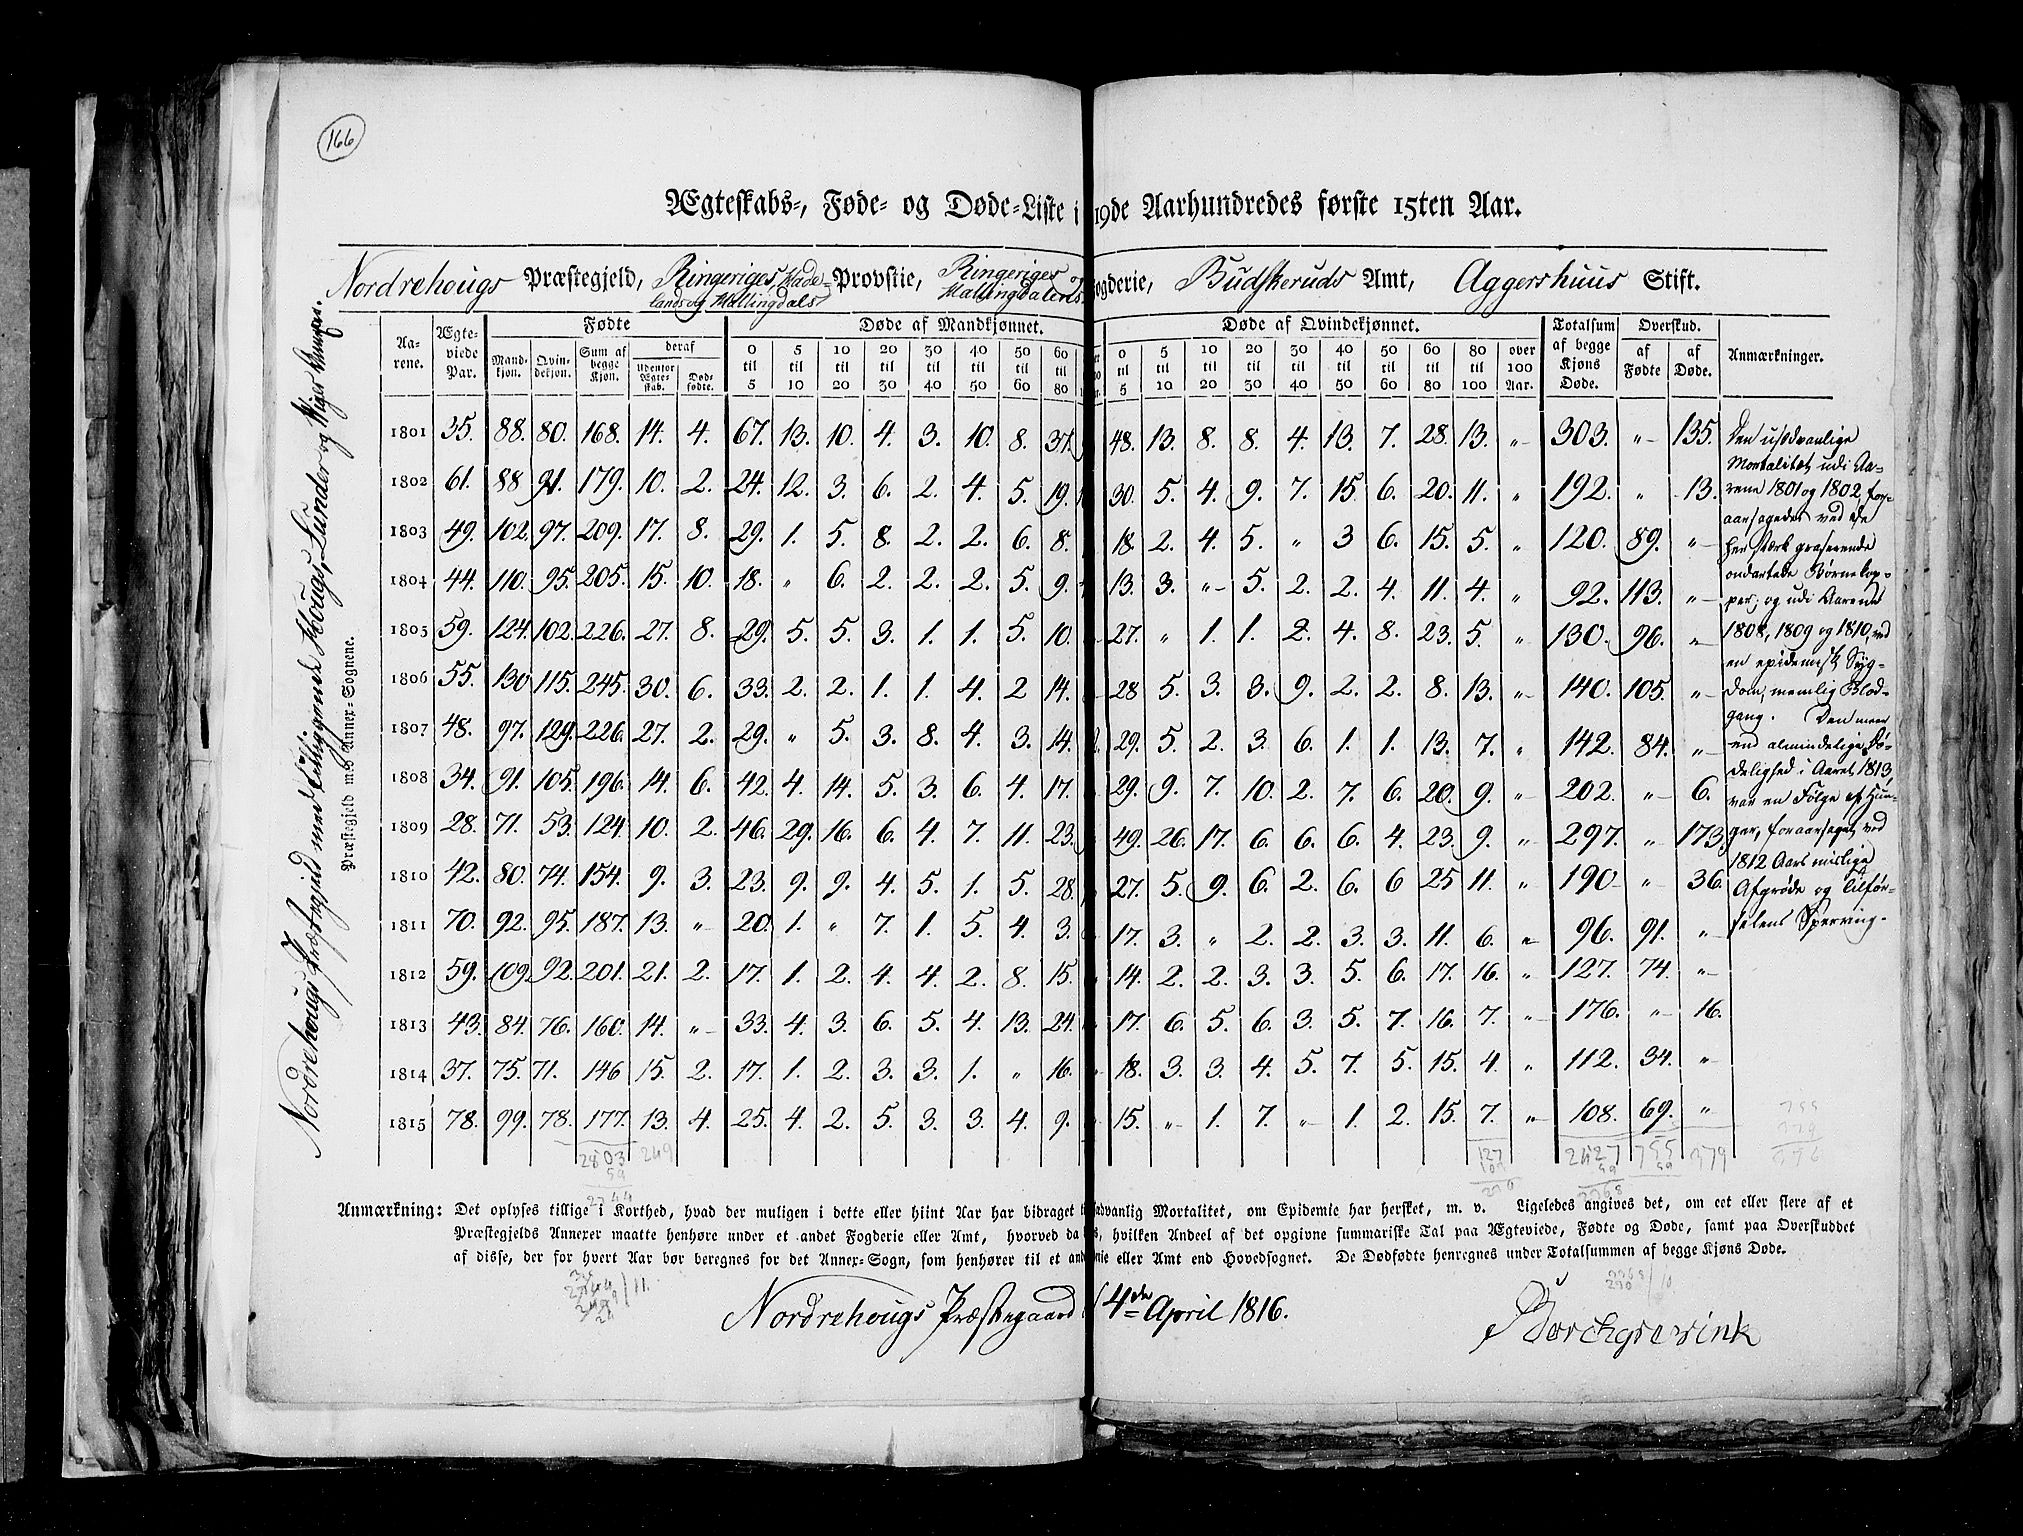 166
Ægteskabs-, Føde- og Døde-Liste i 19de Aarhundredes første 15ten Aar.
Nordrehougs Præstegjeld, Ringeriges, Hadelands og Hallingdals Provstie, Ringeriges og Hallingdalens Fogderie, Budskeruds Amt, Aggershuus Stift.
Nordrehougs Præstegjeld med tilliggende Hougs, Lunder og Viger
Præstegjeld m:s Annex-Sognene.
Aarene. Ægteviede Par. Fødte Døde af Mandkjønnet. Døde af Qvindekjønnet. Totalsum af begge Kjøns Døde. Overskud. Anmærkninger.
Mandkjøn. Qvindekjøn. Sum af begge Kjøn. deraf udenfor Ægteskab. Dødfødte. 0 til 5 5 til 10 10 til 20 20 til 30 30 til 40 40 til 50 50 til 60 60 til 80 0 til 5 5 til 10 10 til 20 20 til 30 30 til 40 40 til 50 50 til 60 60 til 80 80 til 100 over 100 Aar. af Fødte af Døde.
1801 35. 88. 80. 168. 14. 4. 67. 13. 10. 4. 3. 10. 8. 37. 48. 13. 8. 8. 4. 13. 7. 28. 13. " 303. " 135.
1802 61. 88 91. 179. 10. 2. 24. 12. 3. 6. 2. 4. 5. 19. 30. 5. 4. 9. 7. 15. 6. 20. 11. " 192. " 13.
1803 49. 102. 97. 209. 17. 8. 29. 1. 5. 8. 2. 2. 6. 8. 18. 2. 4. 5. " 3 6. 15. 5. " 120. 89. "
1804 44. 110. 95. 205. 15. 10. 18. " 6. 2. 2. 2. 5. 9. 13. 3. " 5. 2. 2. 4. 11. 4. " 92. 113. "
1805 59. 124. 102. 226. 27. 8. 29. 5. 5. 3. 1. 1. 5. 10. 27. " 1. 1. 2. 4. 8. 23. 5. " 130. 96. "
1806 55. 130 115. 245. 30. 6. 33. 2. 2. 1. 1. 4. 2 14. 28 5. 3. 3. 9. 2. 2. 8. 13. " 140. 105. "
1807 48. 97. 129. 226. 27. 2. 29. " 5. 3. 8. 4. 3. 14. 29. 5. 2. 3. 6. 1. 1. 13. 7. " 142. 84. "
1808 34. 91. 105. 196. 14. 6. 42. 4. 14. 5. 3. 6. 4. 17. 29. 9. 7. 10. 2. 7. 6. 20. 9. " 202. " 6.
1809 28. 71. 53. 124. 10. 2. 46. 29. 16. 6. 4. 7. 11. 23. 49. 26. 17. 6. 6. 6. 4. 23. 9. " 297. " 173.
1810 42. 80. 74. 154. 9. 3. 23. 9. 9. 4. 5. 1. 5. 28. 27. 5. 9. 6. 2. 6. 6 25 11. " 190 " 36.
1811 70. 92. 95. 187. 13. " 20. 1. " 7. 1. 5. 4. 3. 17. 3. " 2. 2. 3. 3. 11. 6. " 96. 91. "
1812 59. 109. 92. 201. 21. 2. 17. 1. 2. 4. 4. 2. 8. 15. 14. 2. 2. 3. 3. 5. 6. 17. 16. " 127. 74. "
1813 43. 84. 76. 160. 14. " 33. 4. 3. 6. 5. 4. 13. 24. 17. 6. 5. 6. 3. 5. 7. 16. 7. " 176. " 16.
1814 37. 75. 71. 146 15. 2. 17. 1. 2. 3. 3. 1. " 16. 18. 3. 3. 4. 5. 7. 5. 15. 4. " 112. 34. "
1815 78. 99. 78. 177. 13. 4. 25. 4. 2. 5. 3. 3. 4. 9. 15. " 1. 7. " 1. 2. 15. 7. " 108. 69. "
Den usædvanlige
Mortalitet udi Aa-
rene 1801 og 1802, for-
aarsagedes ved de
her stærk graserende
ondartede Børnekop-
per; og udi Aarene
1808, 1809 og 1810, ved
en epidemisk Syg-
dom, nemlig Blod-
gang. Den meer
end almindelige Dø-
delighed i Aaret 1813,
var en Følge af Hun-
ger, foraarsaget ved
1812 Aars mislige
Afgrøde og Tilfør-
selens Sperring.
2803 249 127 2427 755 379
59
2744
Anmærkning: Det oplyses tillige i Korthed, hvad der muligen i dette eller hiint Aar har bidraget til usædvanlig Mortalitet, om Epidemie har hersket, m. v. Ligeledes angives det, om eet eller flere af et
Præstegjelds Annexer maatte henhøre under et andet Fogderie eller Amt, hvorved da hvilken Andeel af det opgivne summariske Tal paa Ægteviede, Fødte og Døde, samt paa Overskuddet
af disse, der for hvert Aar bør beregnes for det Annex-Sogn, som henhører til et eller Amt end Hovedsognet. De Dødfødte henregnes under Totalsummen af begge Kjøns Døde.
Nordrehougs Præstegaard 4de April 1816.
Borchgrevink